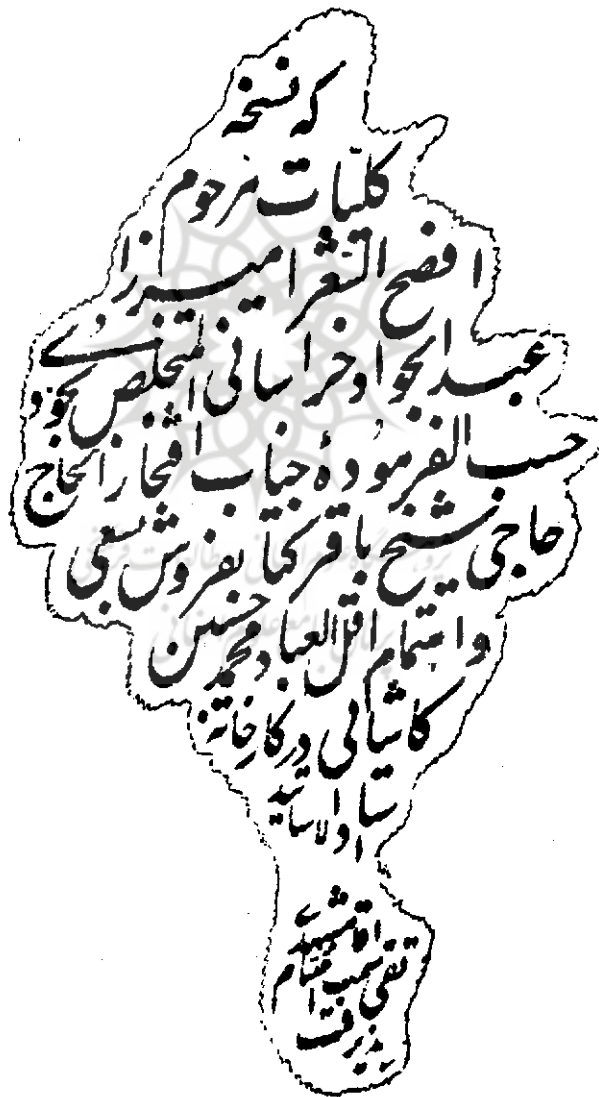 که نسخه
کلیات مرحوم
افصح الشعرا میرزا
عبد الجواد خراسانی المتخلص بجودی
حسب الفرمودهٔ جناب افتخار الحاج
حاجی شیخ باقر کتابفروش بسعی
و اهتمام اقل العباد محمد حسین
کاشانی در کارخانهٔ
استاد
الاساتید
اقا مشهدی
تقی سمت اختتام
پذیرفت